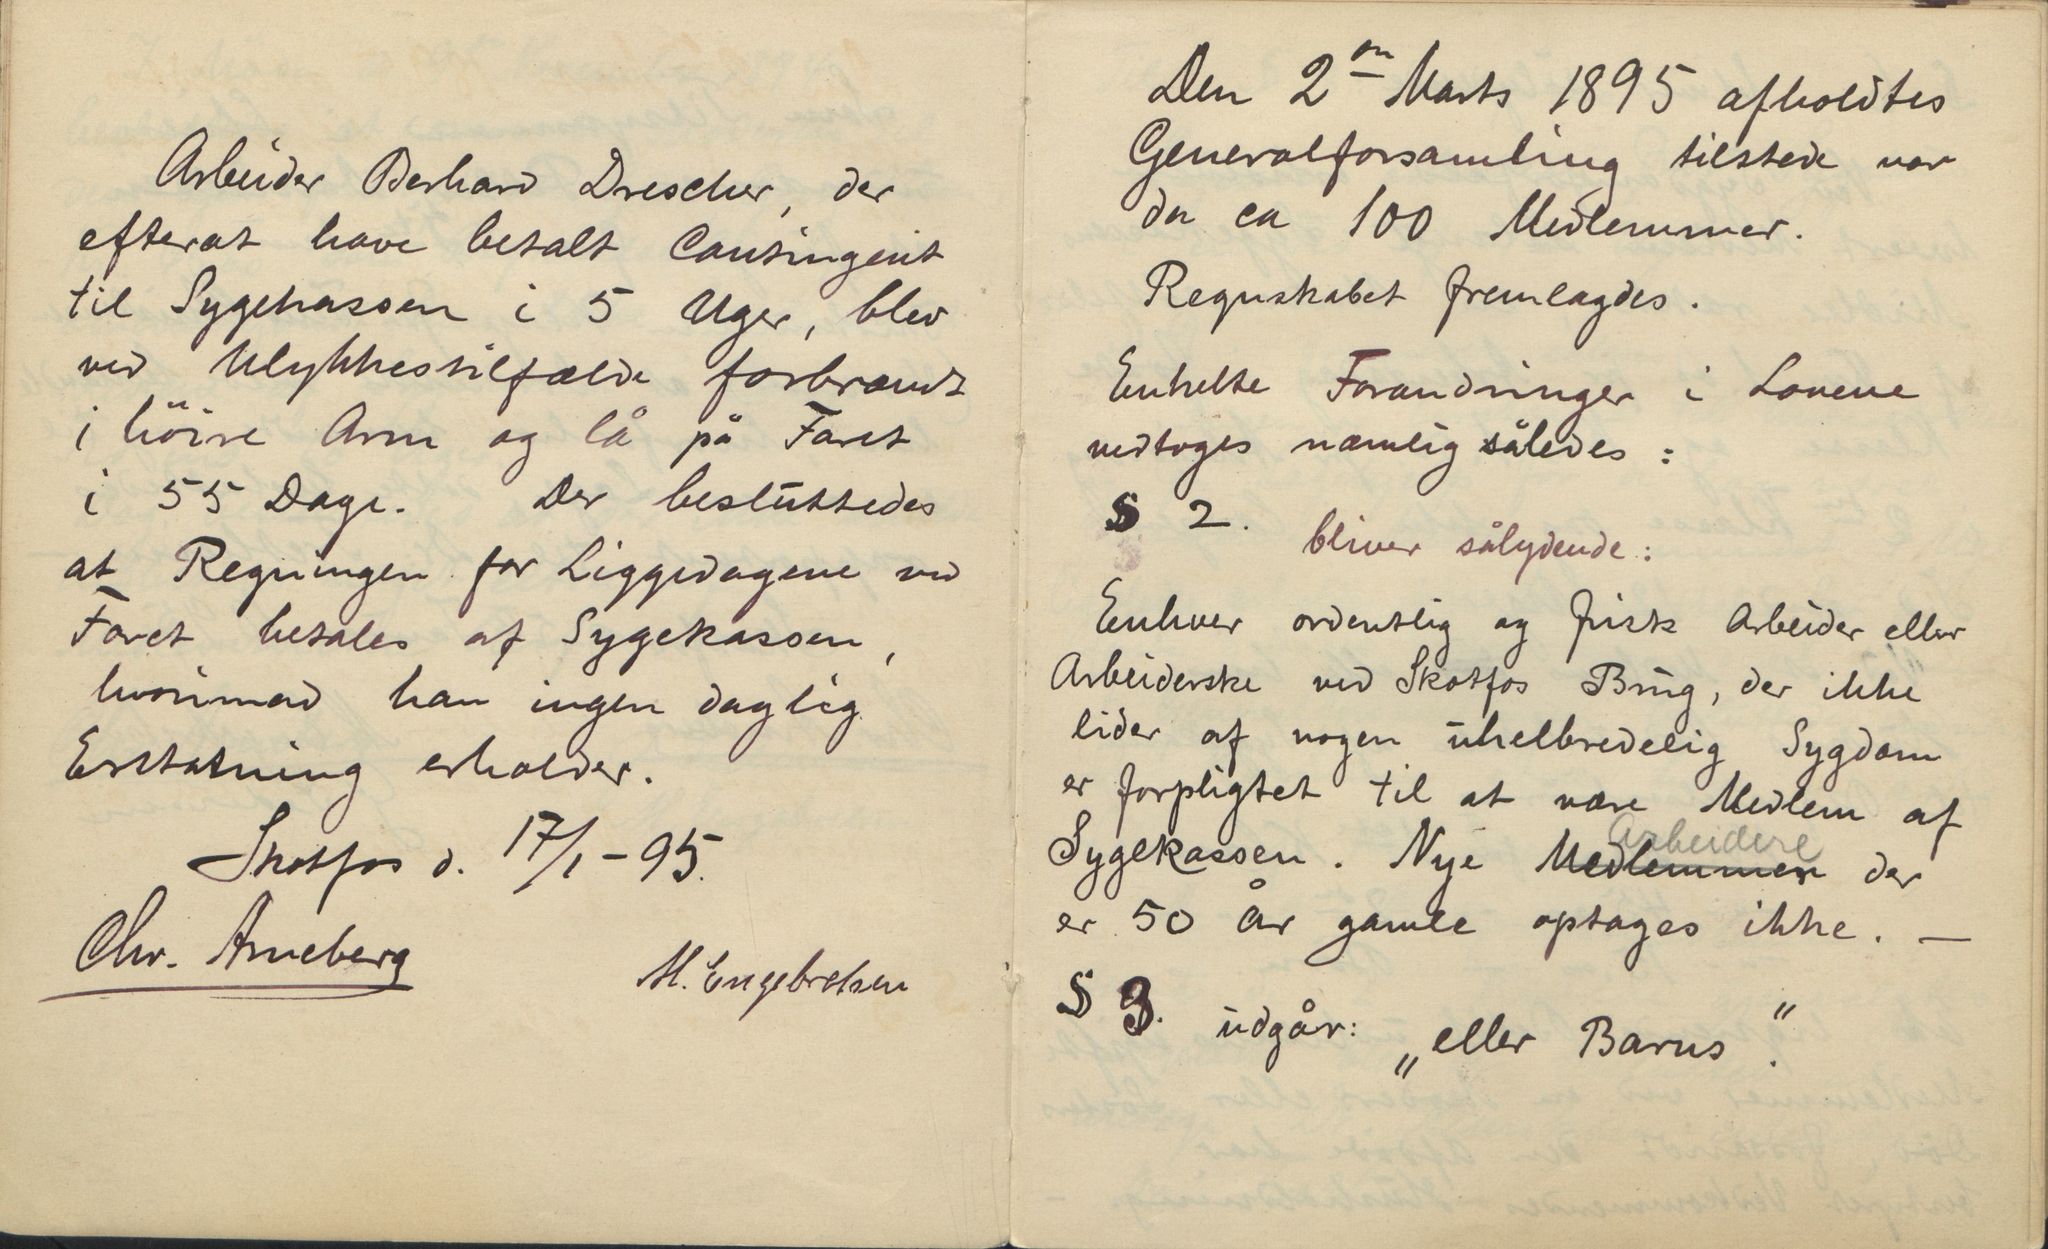 Arbeider Berhard Drescher, der
efterat have betalt Contingent
til Sygekassen i 5 Uger, blev
ved Ulykkestilfælde forbrændt
i höire Arm og lå på Faret
i 55 Dage. Der besluttedes
at Regningen for Liggedagene ved
Faret betales af Sygekassen,
hvorimod han ingen daglig
Erstatning erholder.
Skotfos d. 17/1 - 95.
Chr. Arneberg
M. Engebretsen
Den 2en Marts 1895 afholdtes
Generalforsamling tilstede var
da ca 100 Medlemmer.
Regnskabet fremlagdes.
Enkelte Forandringer i Lovene
vedtoges næmlig således:
§ 2. bliver sålydende:
Enhver ordentlig og frisk Arbeider eller
Arbeiderske ved Skotfos Brug, der ikke
lider af nogen uhelbredelig Sygdom
er forpligtet til at være Medlem af
Arbeidere
Sygekassen. Nye Medlemmer der
er 50 år gamle optages ikke. —
§ 3. udgår: „eller Barns".